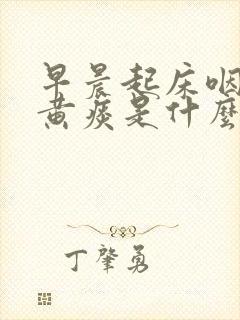 早晨起床咽
黄痰是什麼
丁肇勇